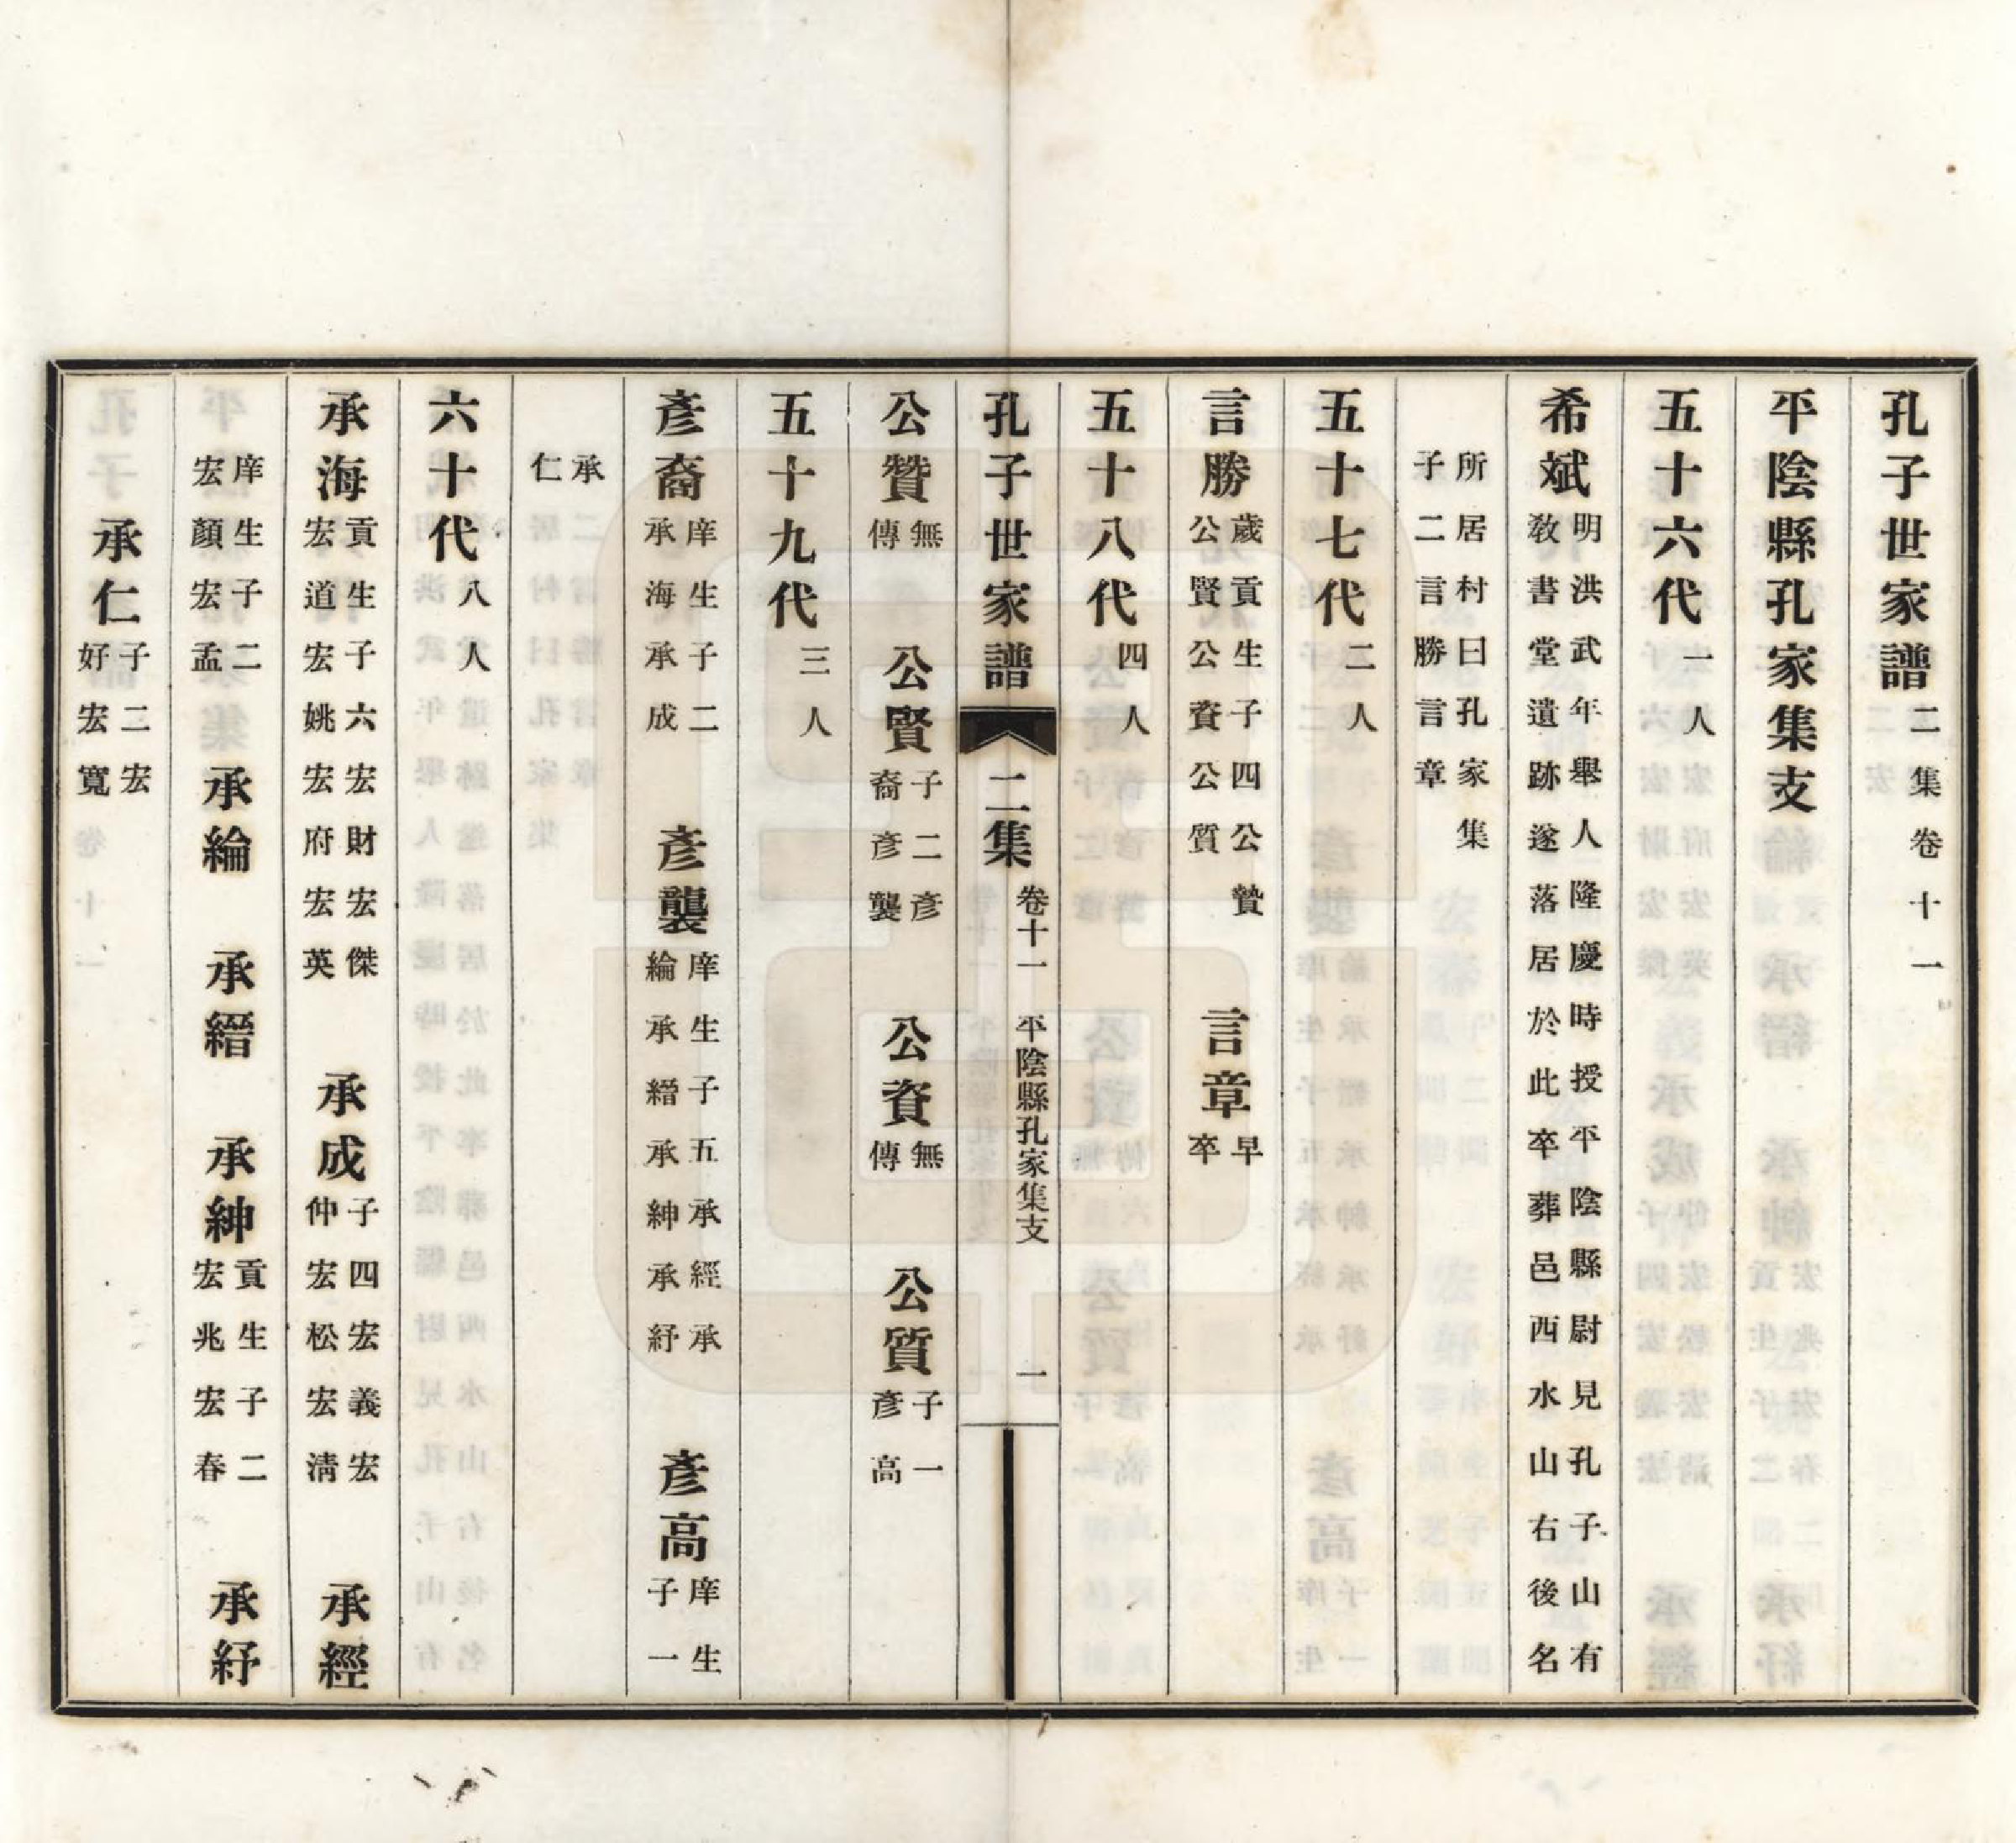 孔子世家譜二集卷十一
平陰縣孔家集支
五十六代一人
希斌明洪武年舉人隆慶時授平陰縣尉見孔子山有
敎書堂遺跡遂落居於此卒葬邑西水山右後名
所居村曰孔家集
子二言勝言章
五十七代二人
言勝歲貢生子四公贊
公賢公資公質
言章早
卒
五十八代四人
孔子世家譜
二集
卷十一 平陰縣孔家集支
一
公贊無
傳
公賢子二彥
裔彥襲
公資無
傳
公質子一
彥高
五十九代三人
彥裔庠生子二
承海承成
彥襲庠生子五承經承
綸承縉承紳承紓
彥高庠生
子一
承
仁
六十代八人
承海貢生子六宏財宏傑
宏道宏姚宏府宏英
承成子四宏義宏
仲宏松宏清
承經
庠生子二
宏顏宏孟
承綸
承縉
承紳貢生子二
宏兆宏春
承紓
承仁子二宏
好宏寬